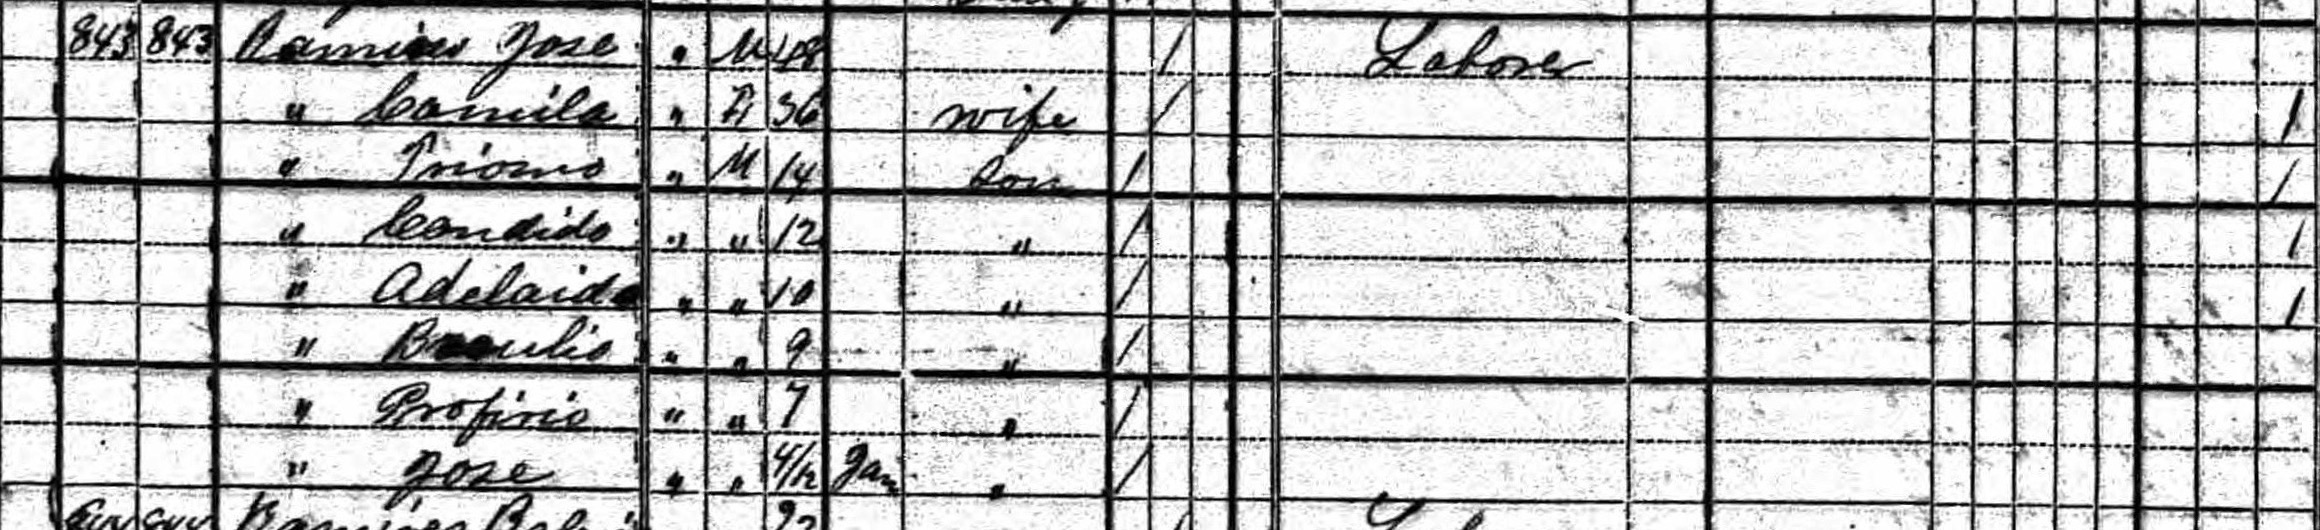 843 843 Ramires Jose " M 48 / Laborer
" Camila " F 36 wife / /
" M 14 Son / /
" Candido " " 12 " / /
" Adelaido " " 10 " / /
" Braulio " " 9 " /
" Profirio " " 7 " /
" Jose " " 4/12 Jan " /
Ramires